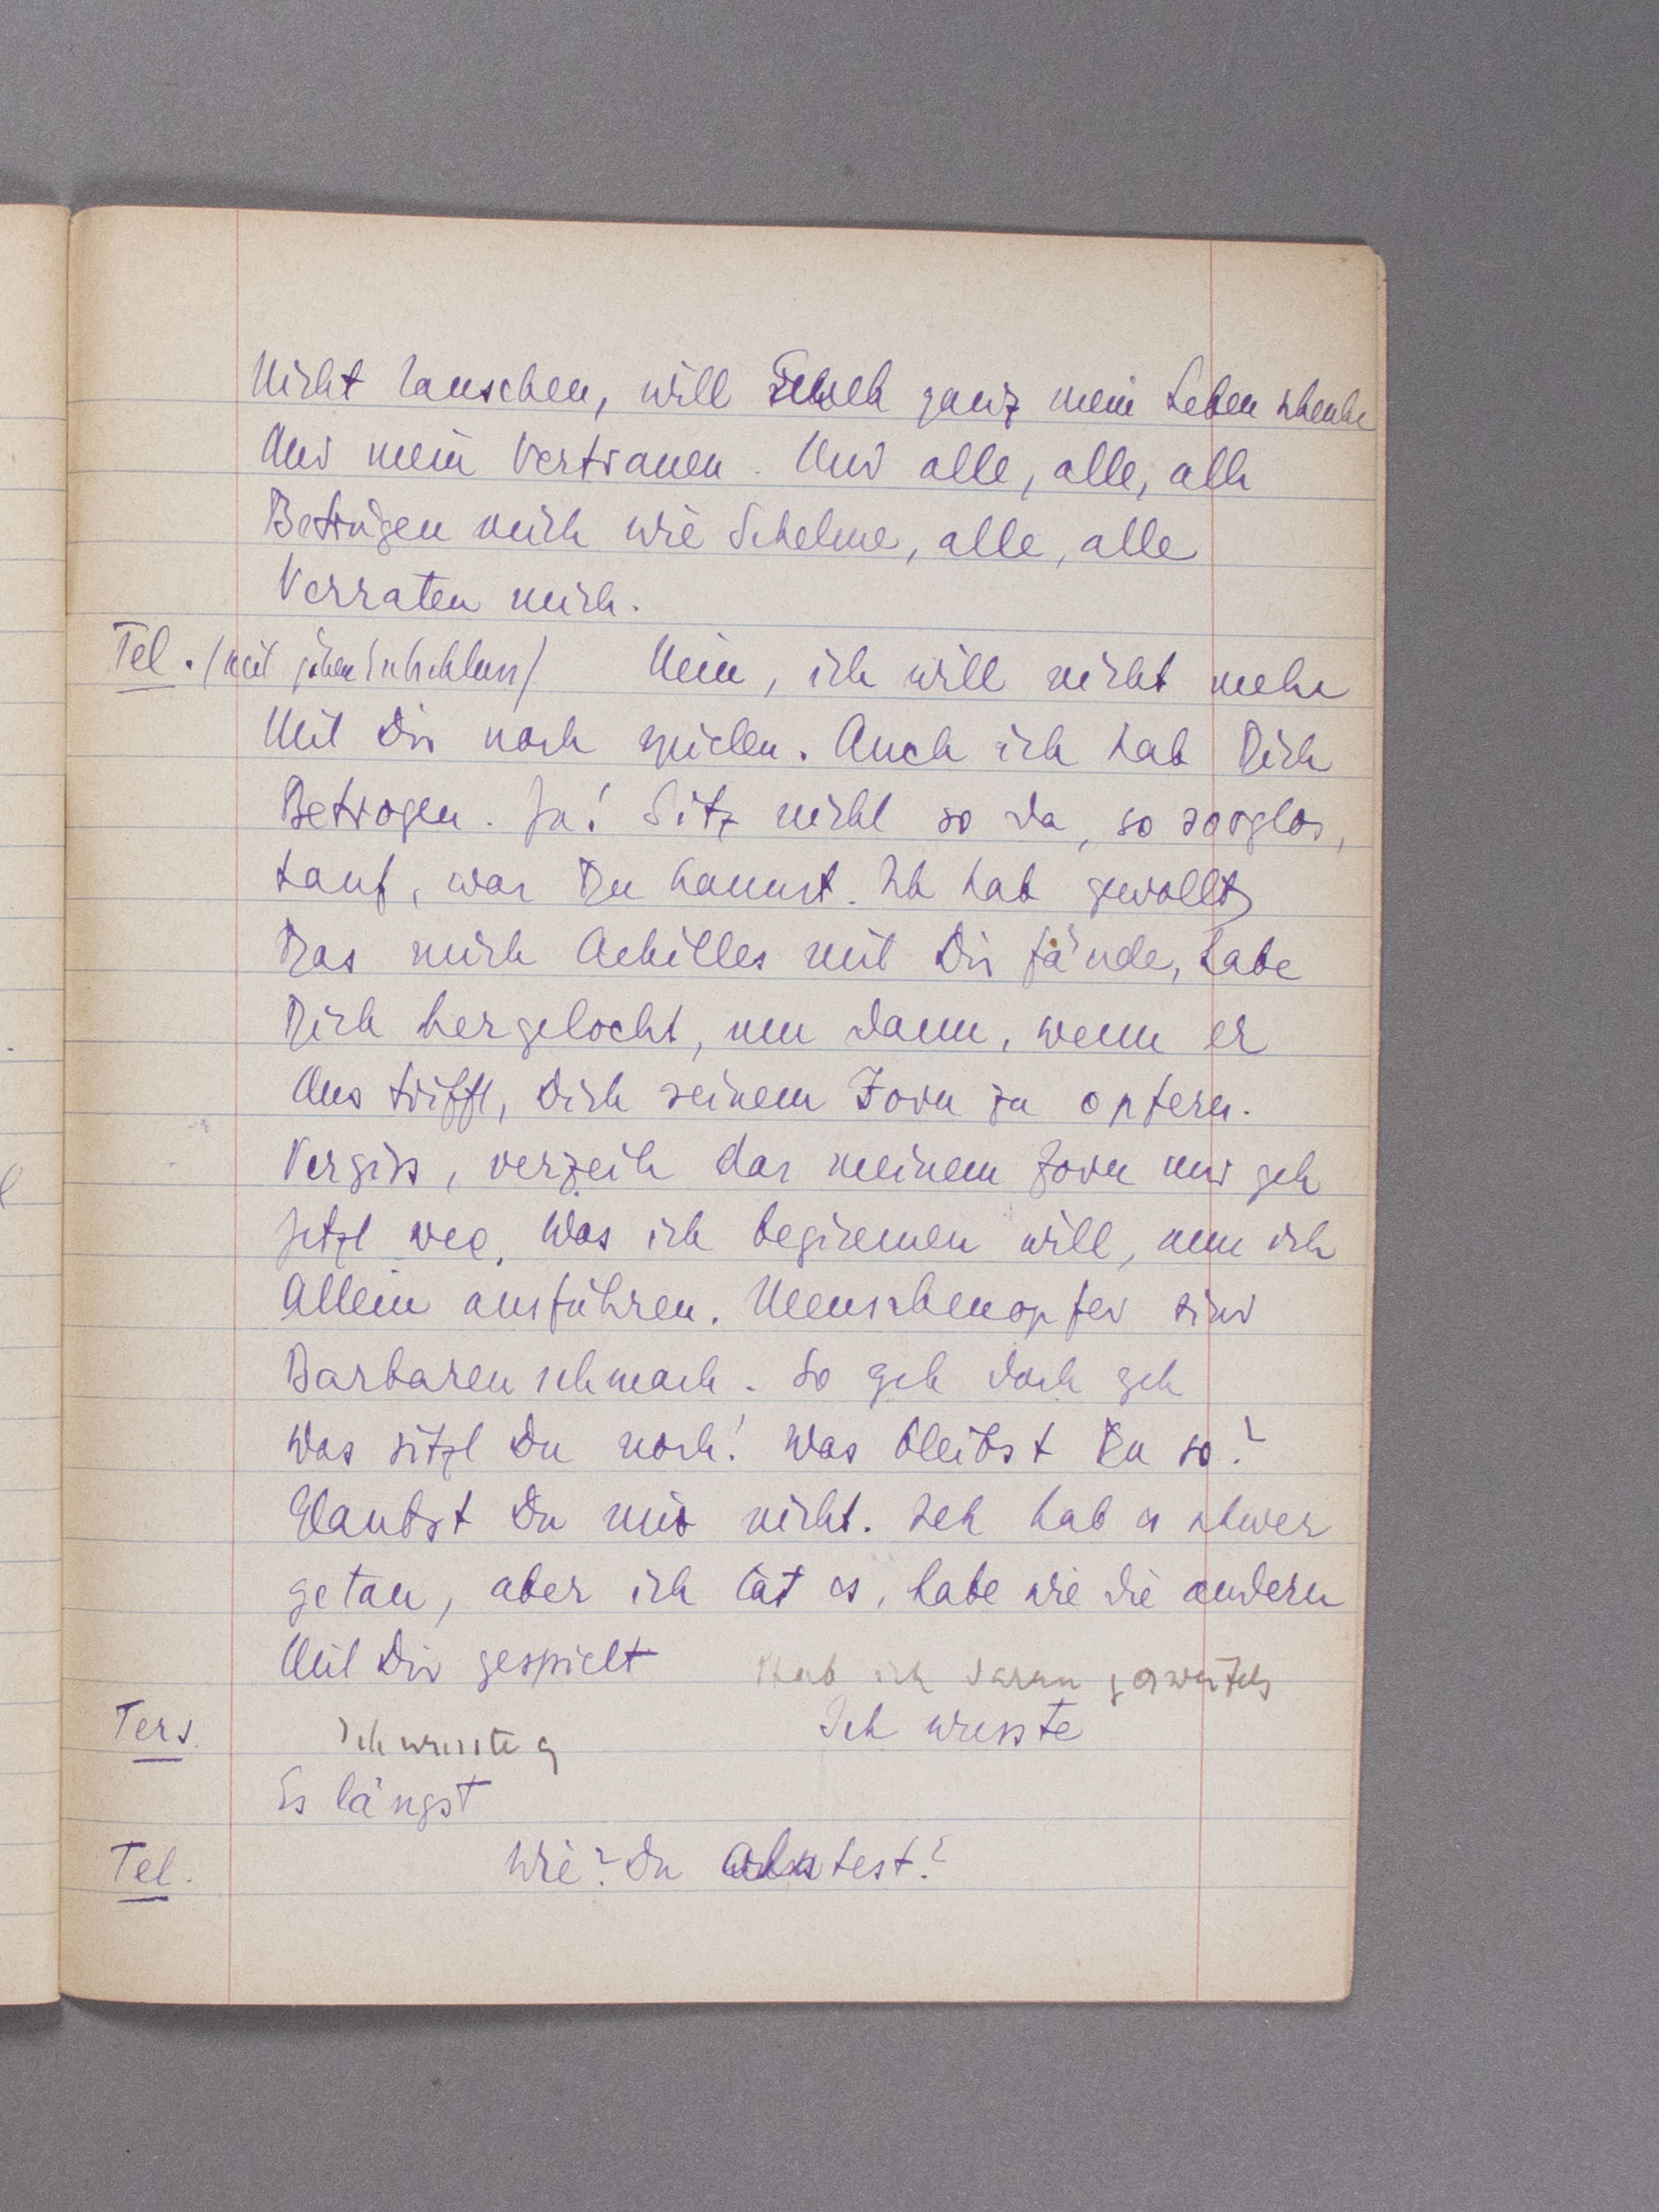 Nicht lauschen, will Euch ganz mein Leben schenken
Und mein Vertrauen. Und alle, alle, alle
Betrügen mich wie Schelme, alle, alle
Verraten mich.
Tel. (mit jähem Entschluss) Nein, ich will nicht mehr
Mit Dir noch spielen. Auch ich hab Dich
Betrogen. Ja! Sitz nicht so da, so sorglos,
Lauf, was Du kannst. Ich hab gewollt,
Das mich Achilles mit Dir fände, habe
Dich hergelockt, um dann, wenn er
Uns trifft, Dich seinem Zorn zu opfern.
Vergiss, verzeih das meinem Zorn und geh
Jetzt weg. Was ich beginnen will, muss ich
Allein ausführen. Menschenopfer sind
Barbarenschmach. So geh doch geh
Was sitzt Du noch! Was bleibst Du so?
Glaubst Du mir nicht. Ich hab es schwer
getan, aber ich tat es, habe wie die andern
Mit Dir gespielt
Hab ich daran gezweifelt
Ters. Ich wusste
Ich wusste es
Es längst
Tel. Wie? Du ahntest?